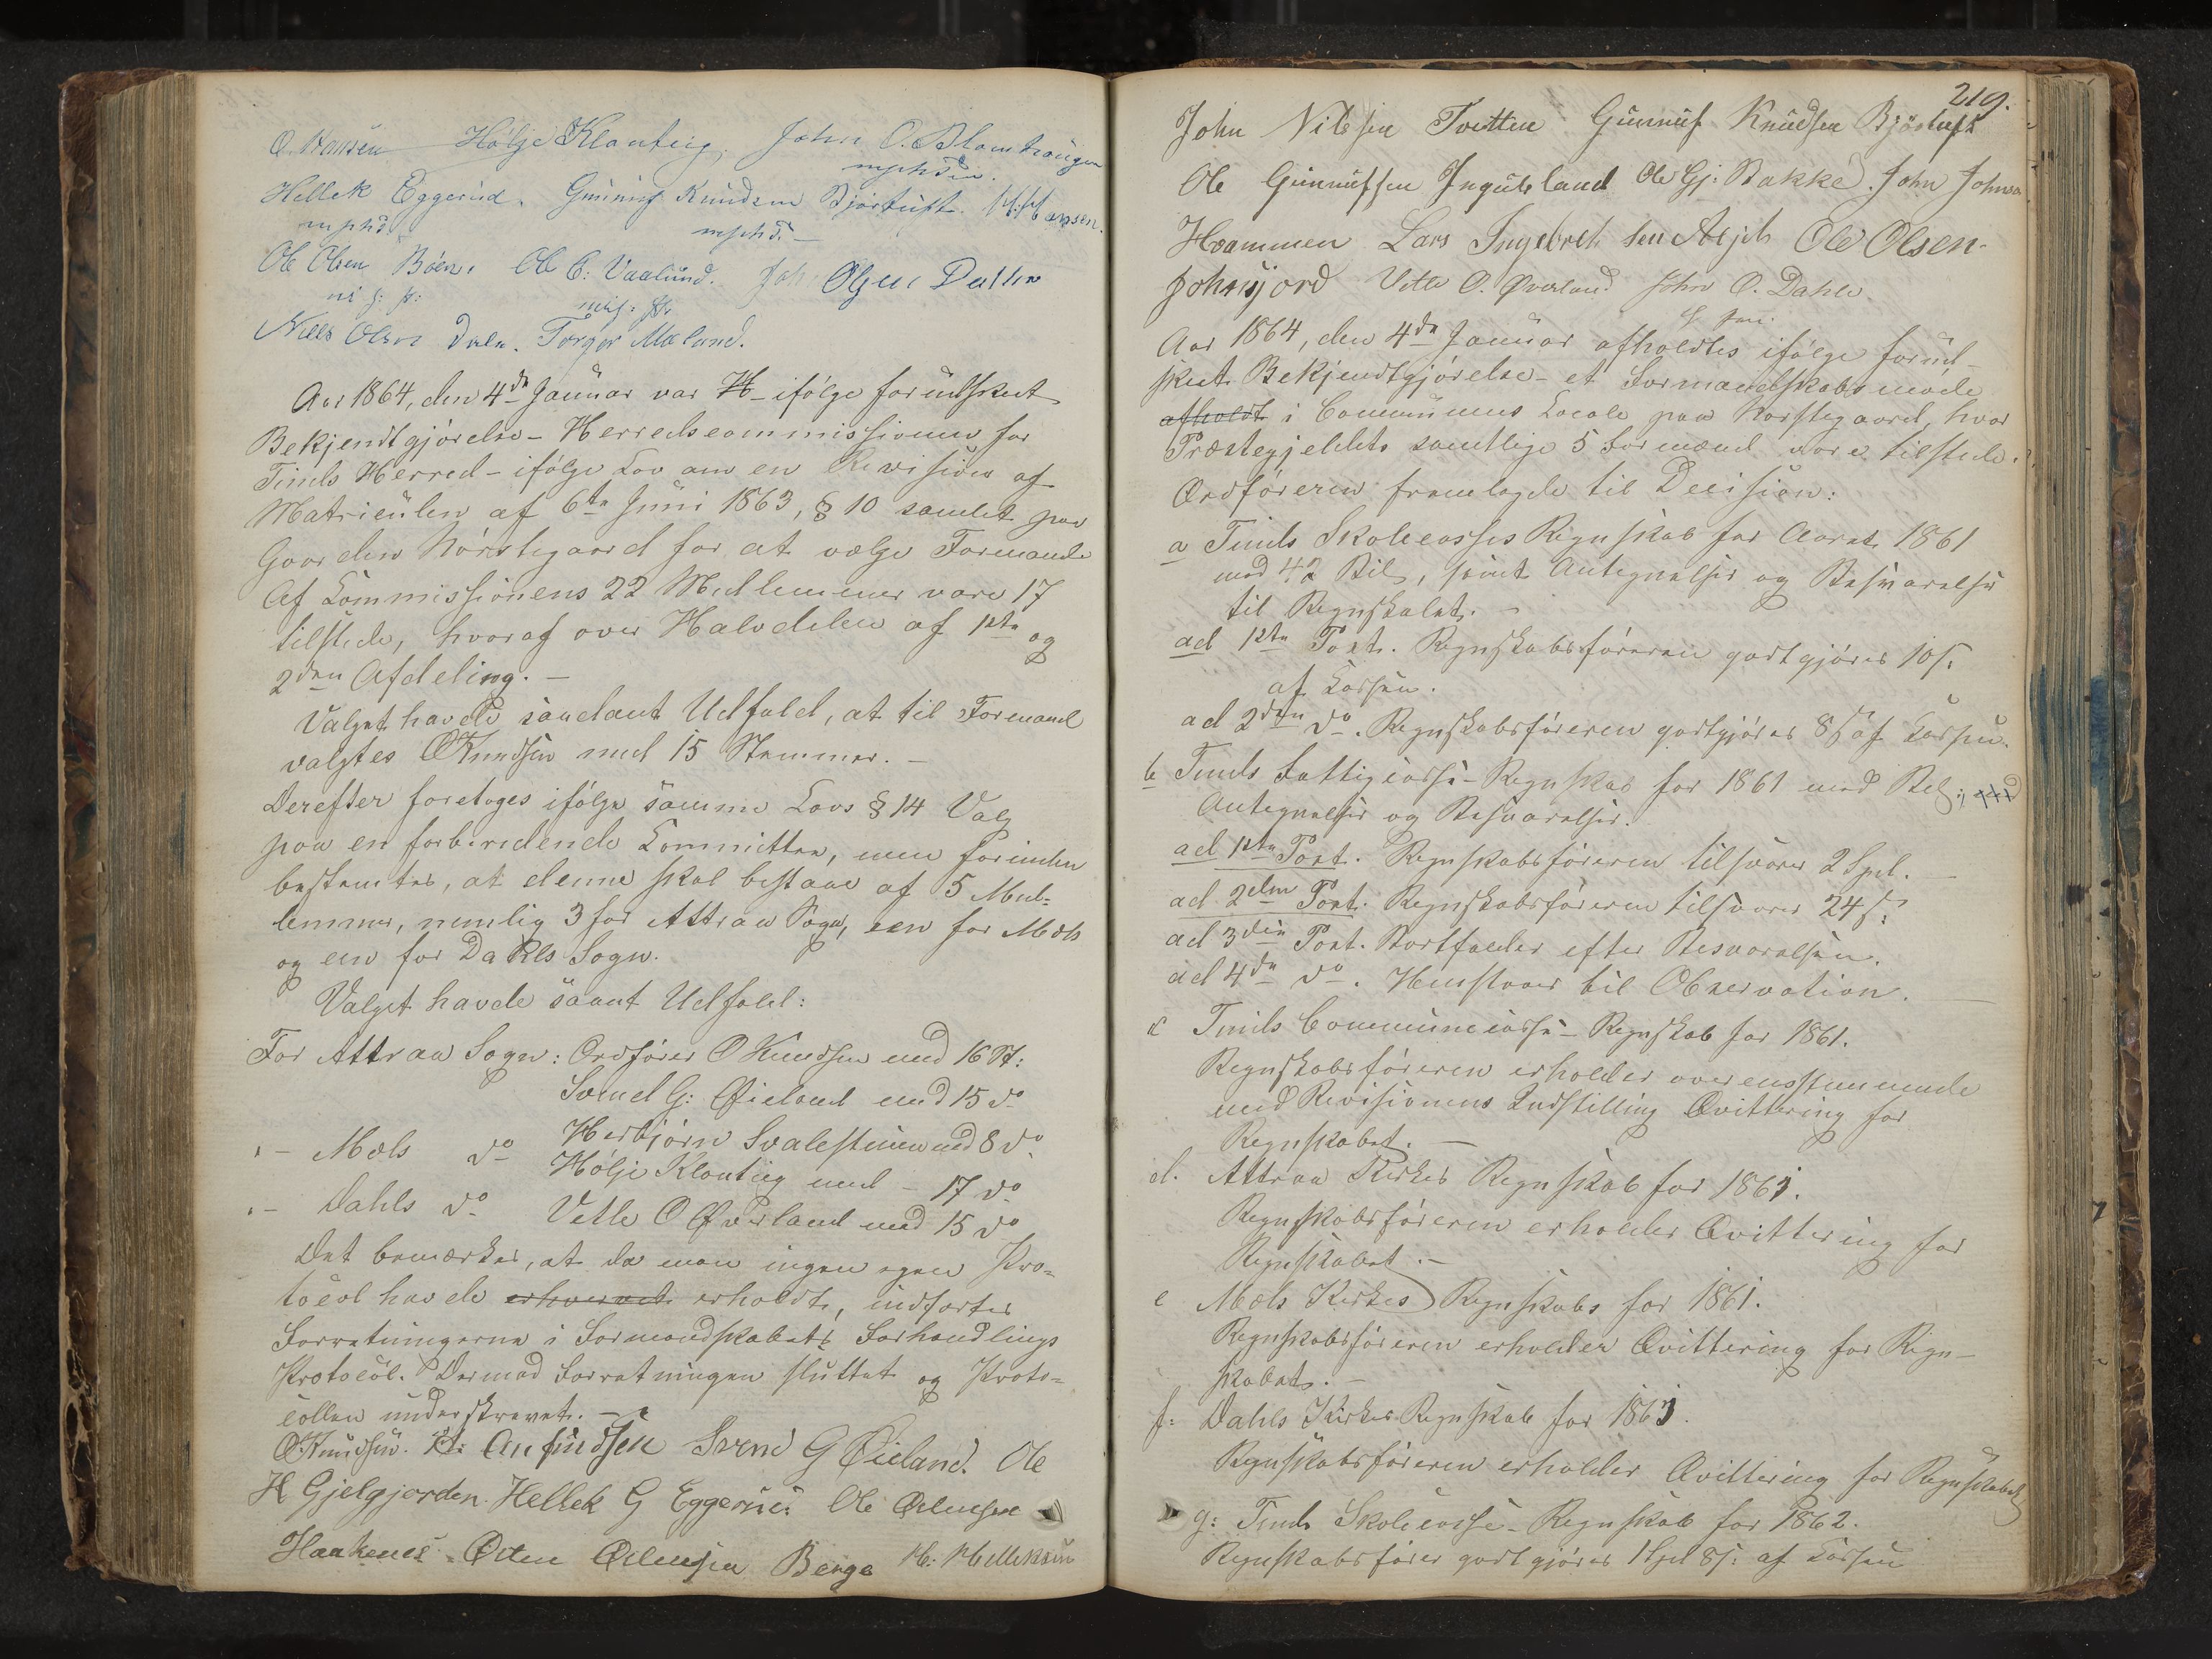 O. Hansen Hølje Klonteig. John O. Blomhougen
mphdn.
Hellek Eggerud. Gunnuf Knudsen Bjørtuft. H. Hansen.
mphd. mphd. –
Ole Olsen Böen. Ole C: Vaalund. Joh Olsen Dallen
m: f: p: m: f: p:
Nills Olsen Dale. Torger Mæland.
Aar 1864, den 4de Januar var H ifølge forudskeet
Bekjendtgjørelse – Herredscommissionen for
Tinds Herred – ifølge Lov om en Revision af
Matriculen af 6te Juni 1863, § 10 samlet paa
Gaarden Hørstegaard for at vælge Formand.
Af Commissionens 22 Medlemmer vare 17
tilstede, hvoraf over Halvdelen af 1ste og
2den Afdeling. –
Valget havde saadant Udfald, at til Formand
valgtes O Knudsen med 15 Stemmer. –
Derefter foretoges ifølge samme Lovs § 14 Valg
paa en forberedende Committee, men forinden
bestemtes, at denne skal bestaae af 5 Med-
lemmer, nemlig 3 for Attraa Sogn, een for Mæls
og een for Dahls Sogn.
Valget havde saant Udfald:
For Attraa Sogn: Ordfører O Knudsen med 16 St:
Svend G: Øieland med 15 do
Herbjørn Svalestuen med 8 do
„ – Mæls do Hølje Klonteig med – 17 do
„ – Dahls do Vetle O Øverland med 15 do
Det bemærkes, at da man ingen egen Pro-
tocol havde erhvervet erholdt, indførtes
Forretningerne i Formandskabets Forhandlings
Protocol. Dermed Forretningen sluttet og Proto-
collen underskrevet. –
O Knudsen. H: Anfindsen Svend G Øieland. Ole
H Gjelgjorden. Hellek G Eggerud. Ole Østensen
Haakenes Østen Østensen Berge H: Helleksen
219.
John Nilssen Tveiten Gunnuf Knudsen Bjørtuft
Ole Gunnufsen Ingulsland Ole Gj: Bakke. John Johnsen
Hvammen Lars Ingebretsen Ole Olsen
Johnsjord Vetle O. Øverland John O. Dahle.
Aar 1864, den 4de Januar afholdtes ifølge forud-
skeet Bekjendtgjørelse – et Formandskabsmøde
afholdt i Communens Locale paa Hørstegaard, hvor
Præstegjeldets samtlige 5 Formænd vare tilstede.
Ordføreren fremlagde til Decision:
a Tinds Skolecasses Regnskab for Aaret 1861
med 42 Bil, samt Antegnelser og Besvarelser
til Regnskabet. –
ad 1ste Post. Regnskabsføreren godtgjøres 10 s.
af Cassen.
ad 2den do. Regnskabsføreren godtgjøres 8 s af Cassen.
b Tinds Fattigcasse – Regnskab for 1861 med Bil:,
Antegnelser og Besvarelser.
ad 1ste Post. Regnskabsføreren tilsvarer 2 Spd. –
ad 2den Post. Regnskabsføreren tilsvarer 24 s.
ad 3die Post. Bortfalder efter Besvarelsen.
ad 4de do. Henstaaer til Observation. –
c Tinds Communecasse – Regnskab for 1861.
Regnskabsføreren erholder overensstemmende
med Revisionens Indstilling Qvittering for
Regnskabet. –
d. Attraa Kirkes Regnskab for 1861.
Regnskabsføreren erholder Qvittering for
Regnskabet. –
e Mæls Kirkes Regnskabs for 1861.
Regnskabsføreren erholder Qvittering for Regn-
skabet. –
f: Dahls Kirkes Regnskab for 1861.
Regnskabsføreren erholder Qvittering for Regnskabet
g: Tinds Skolecasse – Regnskab for 1862.
Regnskabsfører godtgjøres 1 Spd 8 s: af Cassen